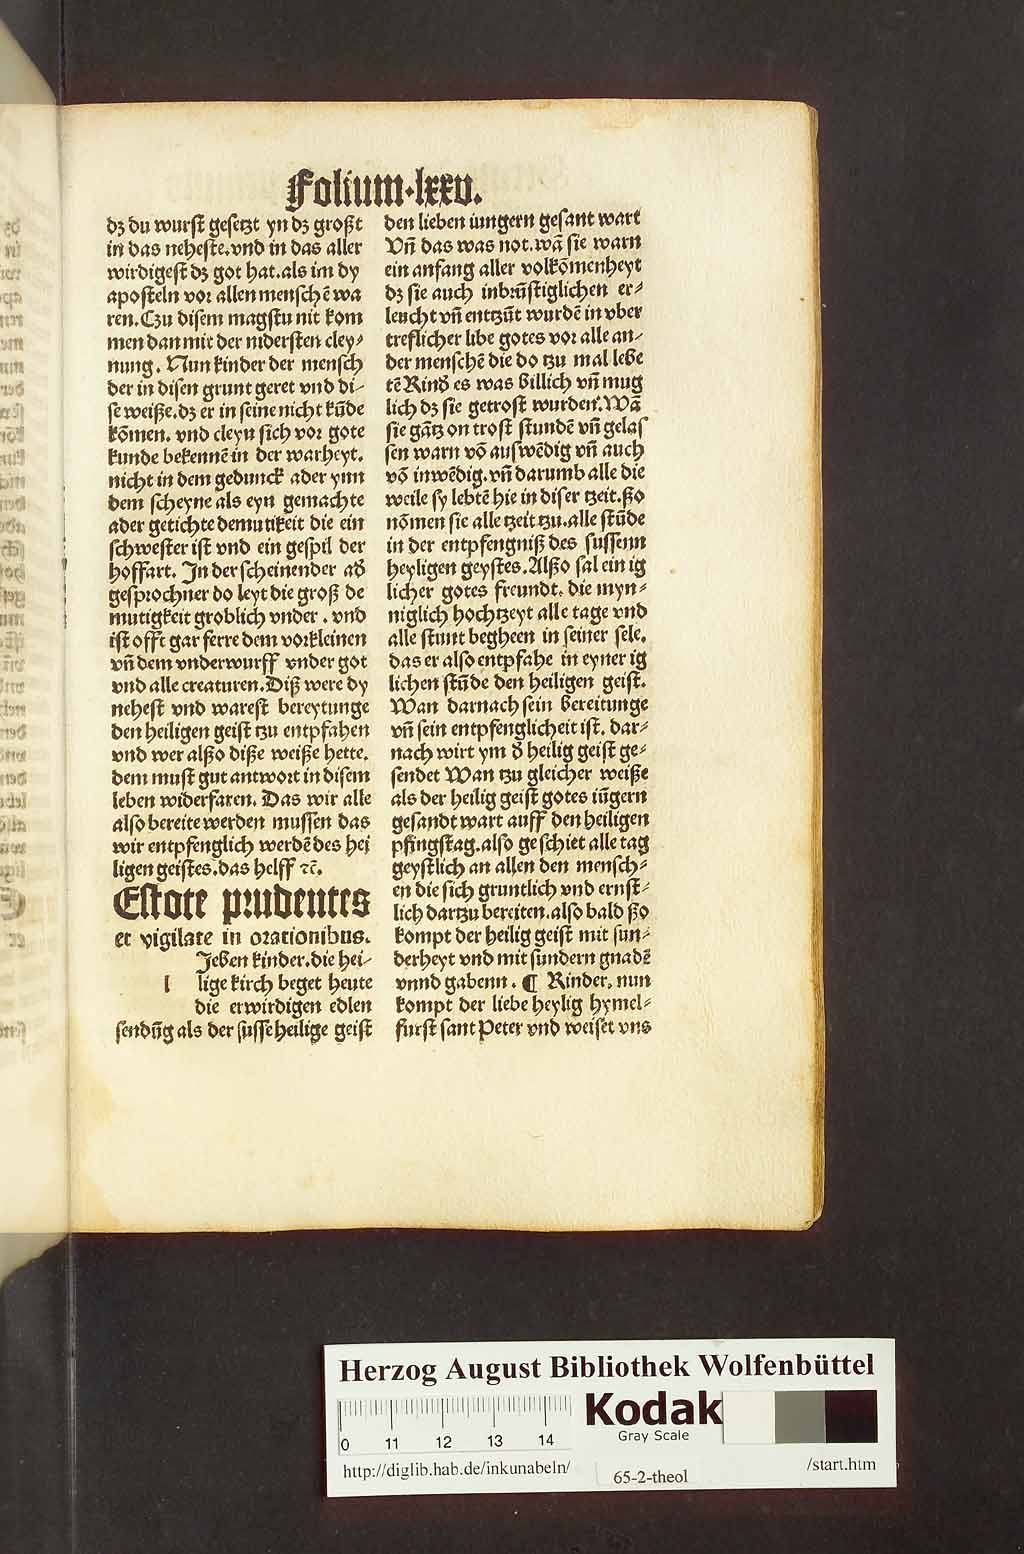 Folium·lxxv.
dz du wurst gesetzt yn dz großt
in das neheste.vnd in das aller
wirdigest dz got hat.als im dy
aposteln vor allen menschē wa
ren.Czu disem magstu nit kom
men dan mit der nidersten cley⸗
nung. Nun kinder der mensch
der in disen grunt geret vnd di⸗
se weiße.dz er in seine nicht kūde
kōmen. vnd cleyn sich vor gote
kunde bekennē in der warheyt.
nicht in dem gedunck ader ynn
dem scheyne als eyn gemachte
ader getichte demutikeit die ein
schwester ist vnd ein gespil der
hoffart. In der scheinender ad̛
gesprochner do leyt die groß de
mutigkeit groblich vnder . vnd
ist offt gar ferre dem vorkleinen
vñ dem vnderwurff vnder got
vnd alle creaturen.Diß were dy
nehest vnd warest bereytunge
den heiligen geist tzu entpfahen
vnd wer alßo diße weiße hette.
dem must gut antwort in disem
leben widerfaren. Das wir alle
also bereite werden mussen das
wir entpfenglich werdē des hei
ligen geistes.das helff ⁊c̄.
Estote prudentes
et vigilate in orationibus.
Ieben kinder.die hei⸗
l lige kirch beget heute
die erwirdigen edlen
sendūg als der susse heilige geist
den lieben iungern gesant wart
Vñ das was not.wā sie warn
ein anfang aller volkōmenheyt
dz sie auch inbrūstiglichen er⸗
leucht vñ entzūt wurdē in vber
treflicher libe gotes vor alle an⸗
der menschē die do tzu mal lebe
tē Kind̛ es was billich vñ mug
lich dz sie getrost wurden.Wā
sie gātz on trost stundē vñ gelas
sen warn vō auswēdig vñ auch
vō inwēdig.vñ darumb alle die
weile sy lebtē hie in diser tzeit.ßo
nōmen sie alle tzeit tzu.alle stūde
in der entpfengniß des sussenn
heyligen geystes.Alßo sal ein ig
licher gotes freundt. die myn⸗
niglich hochtzeyt alle tage vnd
alle stunt begheen in seiner sele.
das er also entpfahe in eyner ig
lichen stūde den heiligen geist.
Wan darnach sein bereitunge
vñ sein entpfenglicheit ist. dar⸗
nach wirt ym d̛ heilig geist ge⸗
sendet Wan tzu gleicher weiße
als der heilig geist gotes iūgern
gesandt wart auff den heiligen
pfingstag.also geschiet alle tag
geystlich an allen den mensch⸗
en die sich gruntlich vnd ernst⸗
lich dartzu bereiten.also bald ßo
kompt der heilig geist mit sun⸗
derheyt vnd mit sundern gnadē
vnnd gabenn . ¶ Kinder, nun
kompt der liebe heylig hymel⸗
furst sant Peter vnd weiset vns
Herzog August Bibliothek Wolfenbüttel
0 11 12 13 14
Kodak
Gray Scale
http://diglib.hab.de/inkunabeln/
65-2-theol
/start.htm